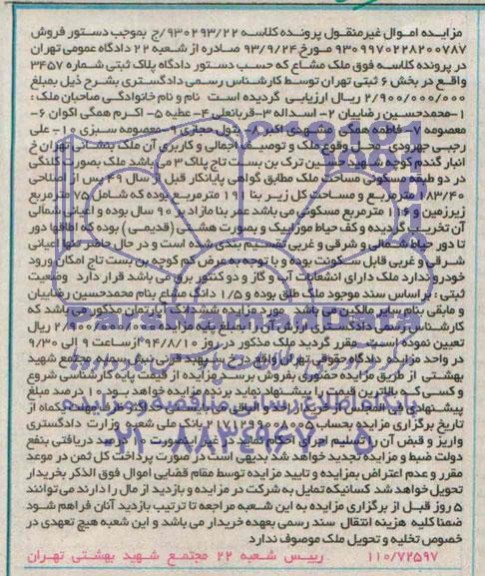 مزایده اموال غیرمنقول پرونده کلاسه ۹۳۰۲۹۳/۲۲/ج بموجب دستور فروش
۹۳۰۹۹۷۰۲۲۸۲۰۰۷۸۷ مورخ ۹۳/۹/۲۴ صادره از شعبه ۲۲ دادگاه عمومی تهران
در پرونده کلاسه فوق ملک مشاع که حسب دستور دادگاه پلاک ثبتی شماره ۳۴۵۷
واقع در بخش ۶ ثبتی تهران توسط کارشناس رسمی دادگستری بشرح ذیل بمبلغ
۲/۹۰۰/۰۰۰/۰۰۰ ریال ارزیابی گردیده است نام و نام خانوادگی صاحبان ملک :
۱-محمدحسین رضاییان ۲- اسداله ۳-قربانعلی ۴- عطیه ۵- اکرم همگی اکوان ۶-
معصومه ۷- فاطمه همگی مشهدی اکبر ۸- بتول حجازی ۹- معصومه سبزی ۱۰- علی
رجبی جهرودی محل وقوع ملک و توصیف اجمالی و کاربری آن ملک بنشانی تهران خ
انبار گندم کوچه شهید حسین ترک بن بست تاج پلاک ۳ می باشد ملک بصورت کلنگی
در دو طبقه مسکونی مساحت ملک مطابق گواهی پایانکار قبل از سال ۴۹ پس از اصلاحی
۱۸۳/۴۰ مترمربع و مساحت کل زیر بنا ۱۹۱ مترمربع بوده که شامل ۷۵ مترمربع
زیرزمین و ۱۱۶ مترمربع مسکونی می باشد عمر بنا مازاد بر ۹۰ سال بوده و اعیانی شمالی
آن تخریب گردیده و کف حیاط موزاییک و بصورت هشتی (قدیمی) بوده که اطاقها دور
تا دور حیاط شمالی و شرقی و غربی تقسیم بندی شده است و در حال حاضر اعیانی
شرقی و غربی قابل سکونت بوده و با توجه به عرض کم کوچه بن بست تاج امکان ورود
خودرو ندارد ملک دارای انشعابات آب و گاز و دو کنتور برق می باشد قرار دارد وضعیت
ثبتی : براساس سند موجود ملک طلق بوده و ۱/۵ دانگ مشاع بنام محمدحسین رضاییان
و مابقی بنام سایر مالکین می باشد مورد مزایده ششدانگ آپارتمان مذکور می باشد که
کارشناس رسمی دادگستری ارزش آن را بمبلغ پایه مزایده ۲/۹۰۰/۰۰۰/۰۰۰ ریال
تعیین نموده است مقرر گردید ملک مذکور در روز ۹۴/۸/۱۰ از ساعت ۹ الی ۹/۳۰
در واحد مزایده دادگاه حقوقی تهران واقع در خ سپهبد قرنی نبش سمیه مجتمع شهید
بهشتی از طریق مزایده حضوری بفروش برسد مزایده از قیمت پایه کارشناسی شروع
و کسی که بالاترین قیمت را پیشنهاد نماید برنده مزایده خواهد بود ۱۰ درصد مبلغ
پیشنهادی فی المجلس از خریدار اخذ و الباقی می بایست حداکثر ظرف مهلت یکماه از
تاریخ برگزاری مزایده بحساب بانک ملی شعبه وزارت دادگستری
واریز و قبض آن را تسلیم اجرای احکام نماید در غیر اینصورت ۱۰ درصد دریافتی بنفع
دولت ضبط و مزایده تجدید خواهد شد بدیهی است در صورت پرداخت کل ثمن در موعد
مقرر و عدم اعتراض بمزایده و تایید مزایده توسط مقام قضایی اموال فوق الذکر بخریدار
تحویل خواهد شد کسانیکه تمایل به شرکت در مزایده و بازدید از مال را دارند می توانند
۵ روز قبل از برگزاری مزایده به این شعبه مراجعه تا ترتیب بازدید آنان فراهم شود
ضمنا کلیه هزینه انتقال سند رسمی بعهده خریدار می باشد و این شعبه هیچ تعهدی در
خصوص تخلیه و تحویل ملک موصوف ندارد
۱۱۰/۷۲۵۹۷ رییس شعبه ۲۲ مجتمع شهید بهشتی تهران